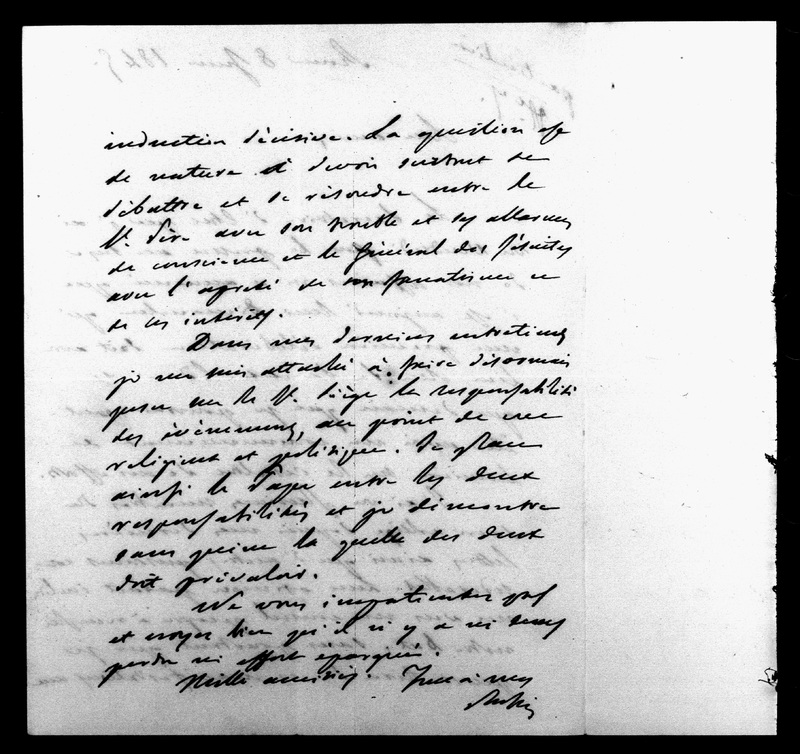 induction décisive. La question est
de nature à devoir surtout se
débattre et se résoudre entre le
St. Père avec son trouble et ses allarmes
de conscience et le Général des Jésuites
avec l'apreté de son fanatisme et
de ses intérêts.
Dans mes derniers entretiens
je me suis attaché à faire désormais
peser sur le St. Siège la responsabilité
des évènements, au point de vue
religieux et politique. Je place
ainsi le Pape entre les deux
responsabilités et je démontre
sans peine la quelle des deux
doit prévaloir.
Ne vous impatientez pas
et croyez bien qu'il n'y a ni temps
perdu ni effort épargné.
Mille amitiés. Tout à vous
Rossi